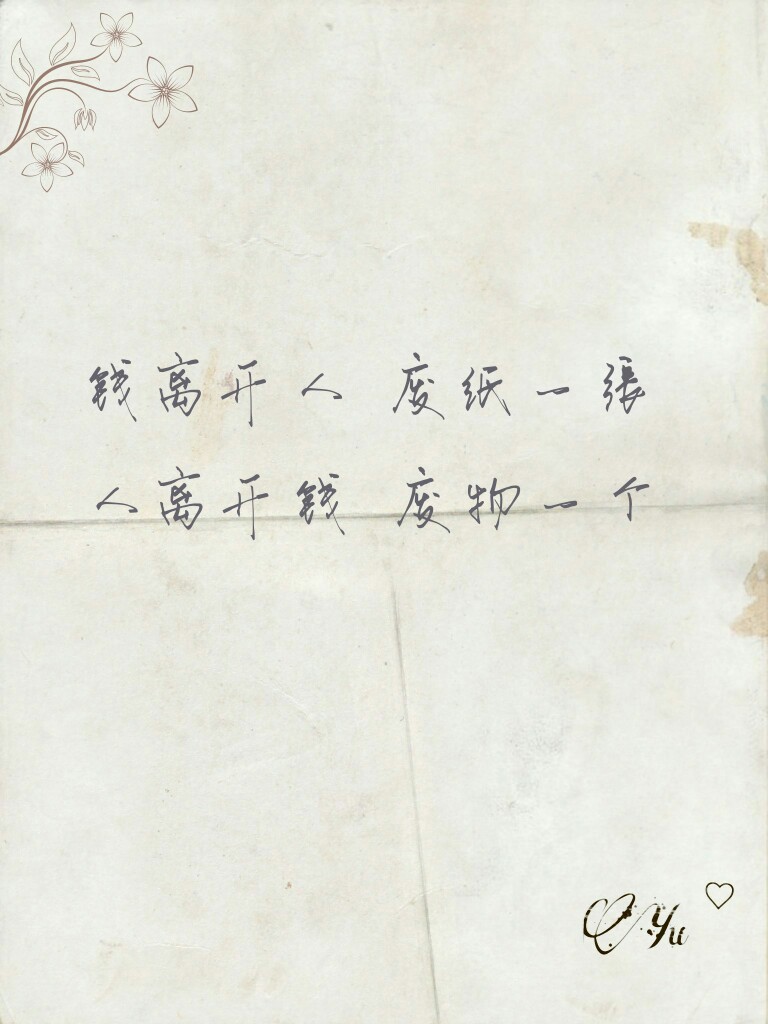 钱离开人 废纸一張
人离开钱 废物一个
Yu